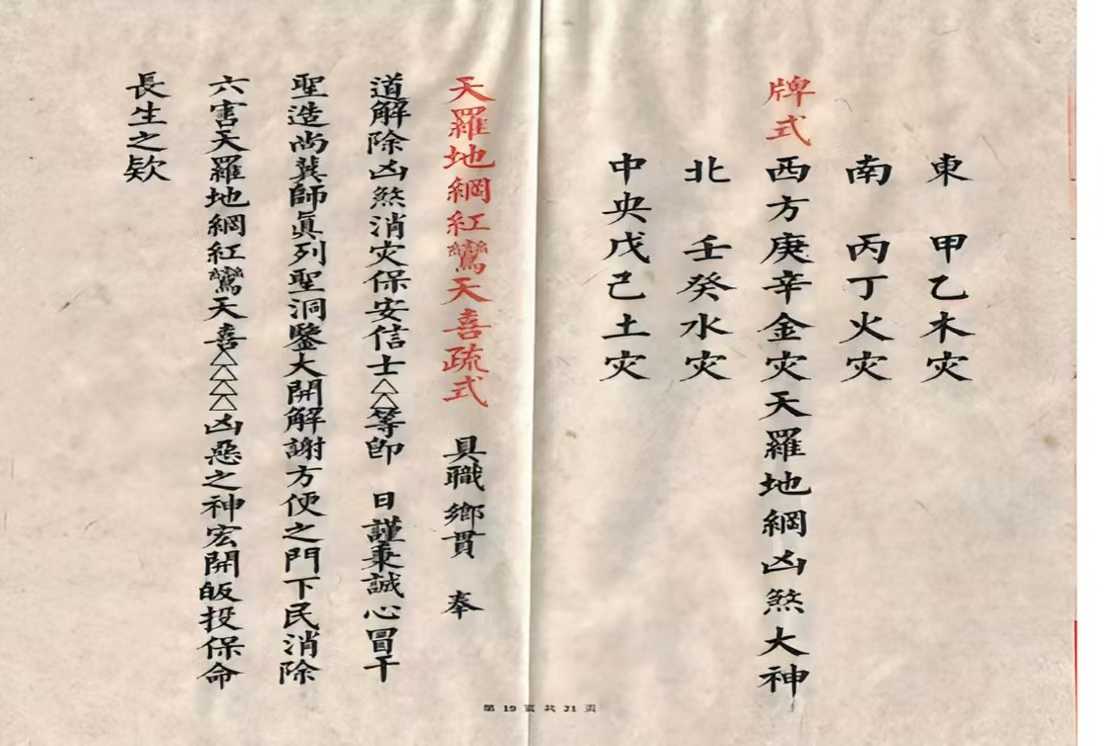 東　甲乙木灾
南　丙丁火灾
牌式　西方庚辛金灾天羅地網凶煞大神
北　壬癸水灾
中央戊己土灾
天羅地網紅鸞天喜疏式　具職鄉貫　奉
道解除凶煞消灾保安信士△△等卽　日謹秉誠心冒干
聖造尚龔師真列聖洞鑒大開解謝方便之門下民消除
六害天羅地網紅鸞天喜△△△△凶惡之神宏開皈投保命
長生之欵
第 19 頁 共 21 頁